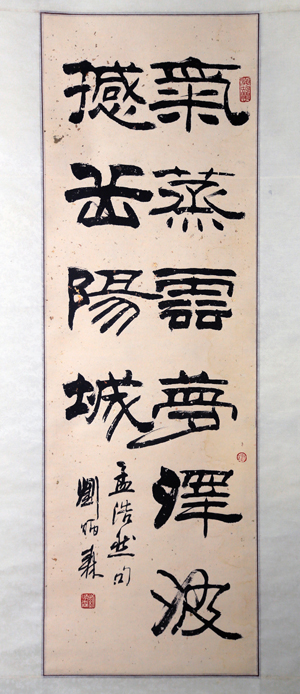 氣蒸雲夢澤波
撼岳陽城
孟浩然句
劉炳森